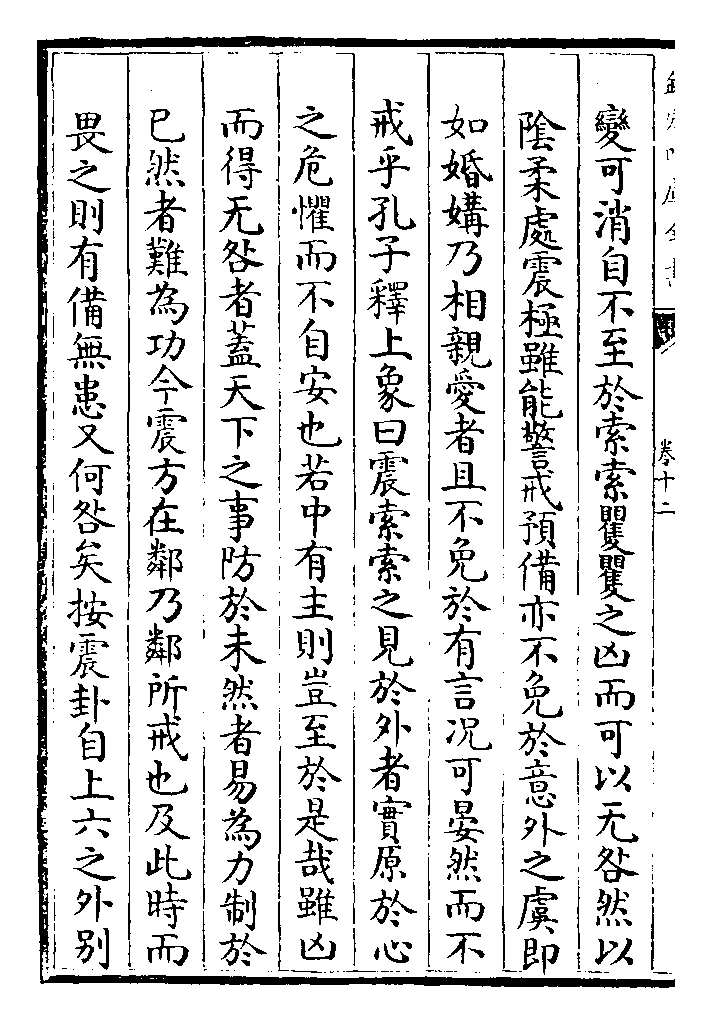 變可消自不至於索索矍矍之凶而可以无咎然以
陰柔處震極雖能警戒預備亦不免於意外之虞即
如婚媾乃相親愛者且不免於有言况可晏然而不
戒乎孔子釋上象曰震索索之見於外者實原於心
之危懼而不自安也若中有主則豈至於是哉雖凶
而得无咎者蓋天下之事防於未然者易為力制於
已然者難為功今震方在鄰乃鄰所戒也及此時而
畏之則有備無患又何咎矣按震卦自上六之外别
卷十二